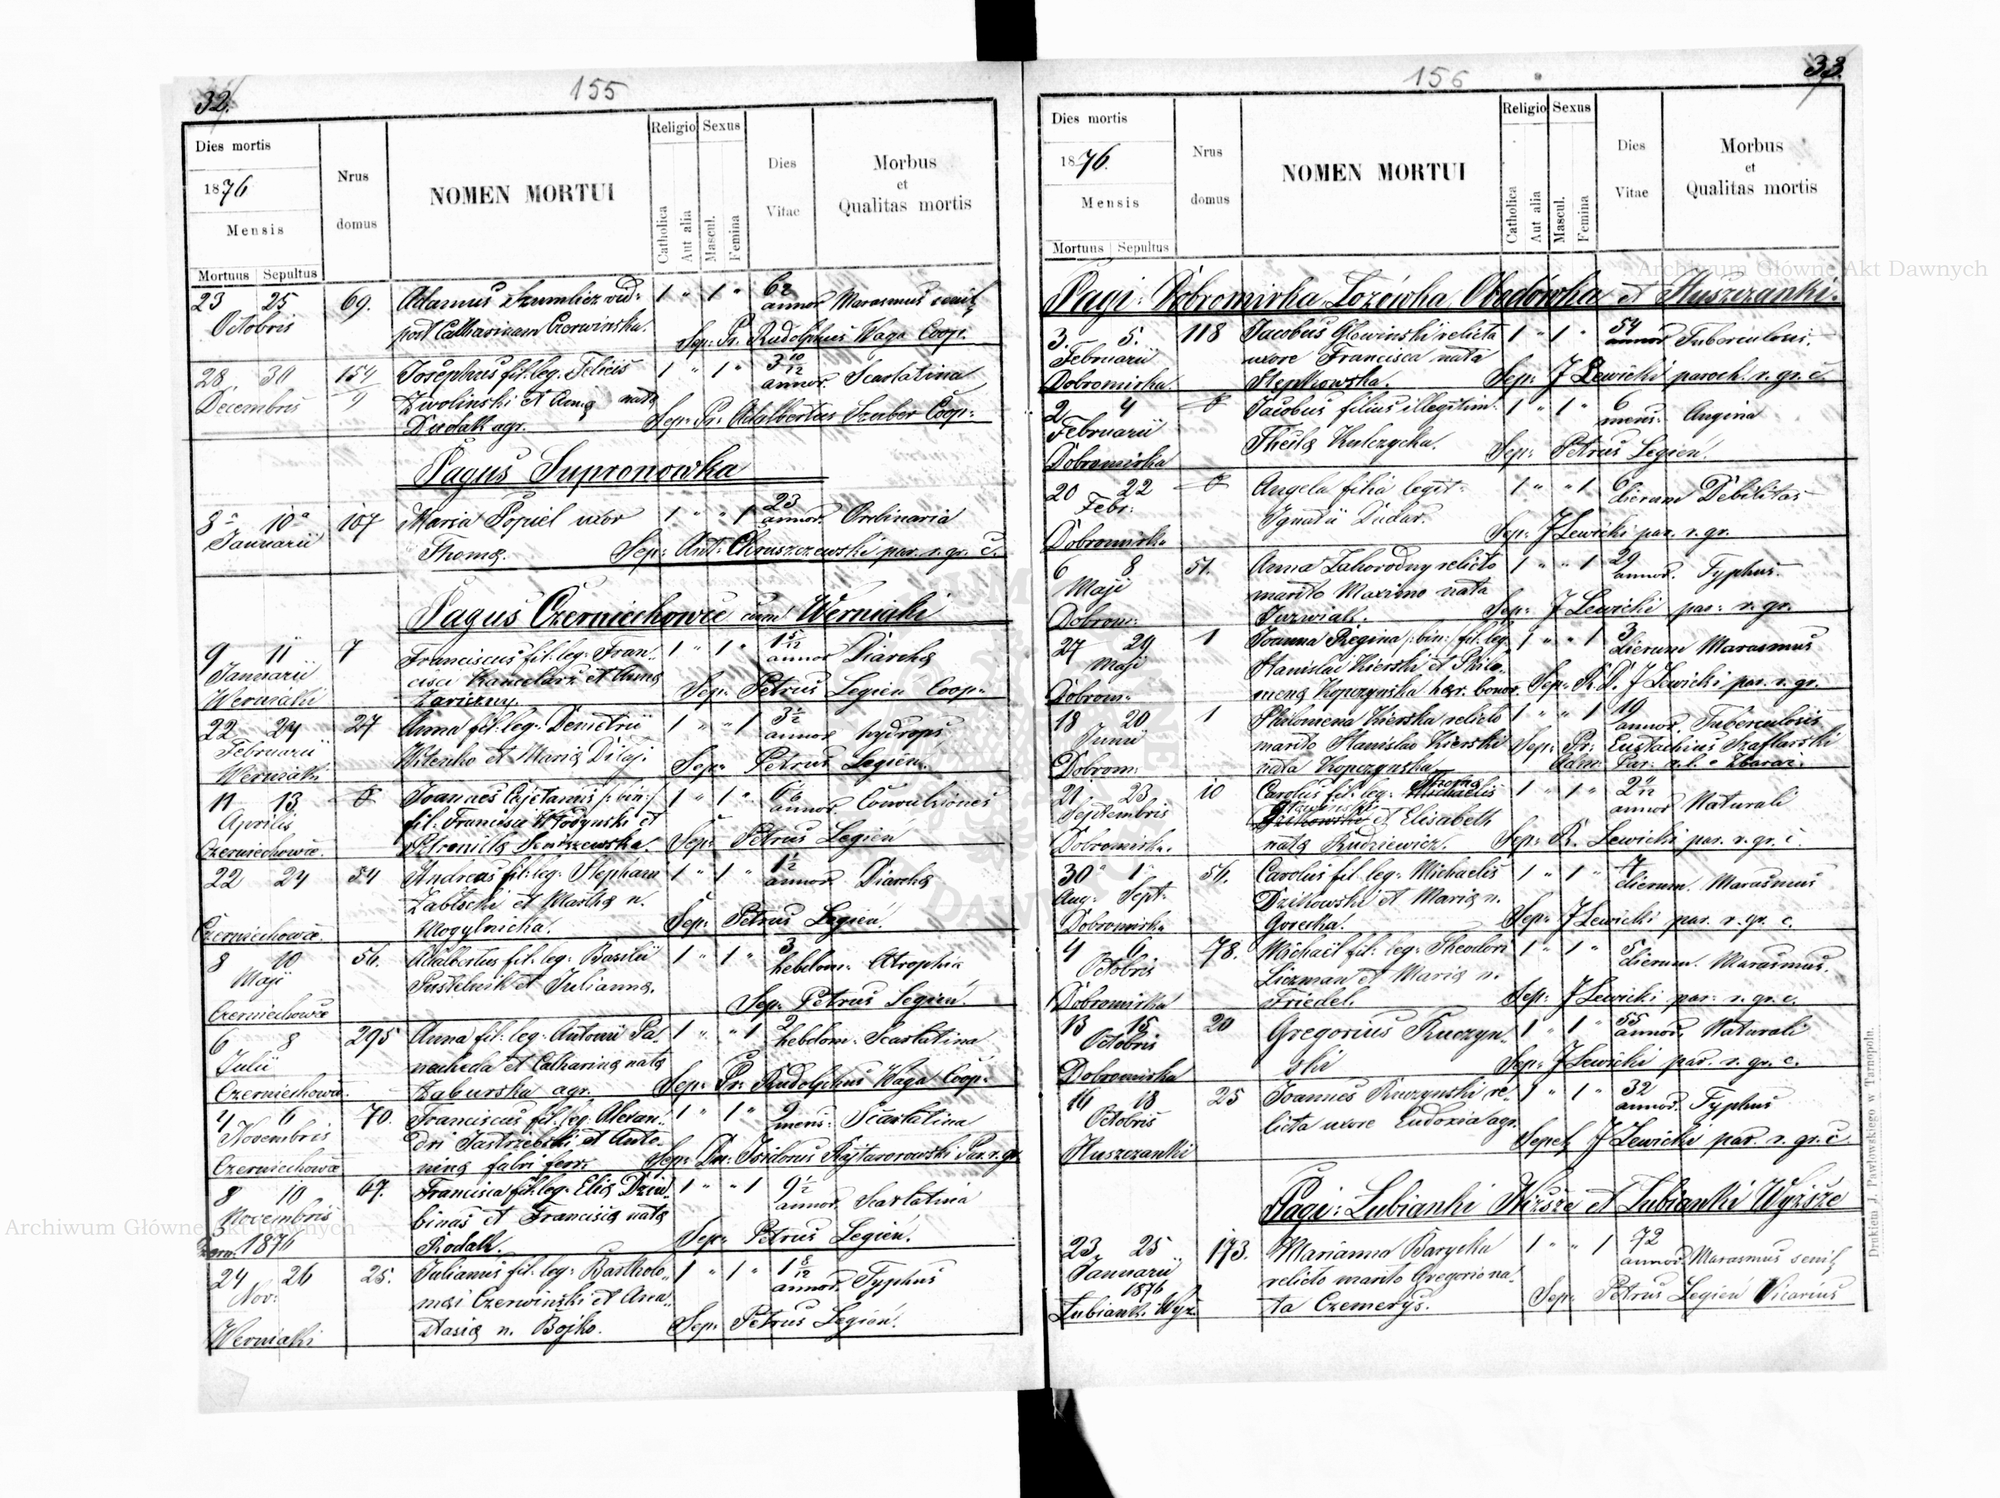 32.
155
Dies mortis
1876
Mensis
Mortuus Sepultus
Nrus
domus
NOMEN MORTUI
Religio
Catholica
Aut alia
Sexus
Mascul.
Femina
Dies
Vitae
Morbus
et
Qualitas mortis
23 25 69. Adamus Szumlicz vid- 1 " 1 " 62
Octobris post Catharinam Czerwinska. annor Marasmus senil
Sep: Pr. Rudolphus Waga Coop.
28 30 154/9 Josephus fil. leg. Felicis 1 " 1 " 3 10/12
Decembris Zwolinski et Annæ nata annor. Scarlatina
Dudak agr. Sep: Pr. Adalbertus Szuber Coop:
Pagus Supronowka
8a 10a 107 Maria Popiel uxor 1 " " 1 23
Januarii annor. Ordinaria
Thomæ. Sep: Ant: Chruszczewski par. r. gr. c.
Pagus Czerniechowce cum Werniaki
9 11 7 Franciscus fil: leg: Fran- 1 " 1 " 1 5/12
Januarii cisci Kancelarz et Annæ annor Diarchæ
Werniaki Zariczny. Sep: Petrus Legien Coop:
22 24 27 Anna fil: leg: Demetrii 1 " " 1 3 1/2
Februarii annor hydrops
Werniaki Witenko et Mariæ Dilaj. Sep: Petrus Legien.
11 13 Joannes Cajetanus /:bin:/ 1 " 1 " 6
Aprilis fil: Francisci Włodynski et annor. Convulsiones
Czerniechowce. Petronillæ Sep: Petrus Legien
22 24 54 Andreas fil: leg: Stephani 1 " 1 " 1 1/2
Zabłocki et Marthæ n. annor. Diarchæ
Czerniechowce. Mogylnicka. Sep: Petrus Legien.
8 10 56. Adalbertus fil: leg: Basilii 1 " 1 " 3
Maji Pustelnik et Juliannæ. hebdom: Atrophia
Czerniechowce Sep: Petrus Legien.
6 8 295 Anna fil: leg: Antonii Pa- 1 " " 1 2
Julii nacheda et Catharinæ nata hebdom: Scarlatina
Czerniechowce. Zaburska agr. Sep: Pr: Rudolphus Waga Coop:
4 6 70. Franciscus fil: leg. Alexan- 1 " 1 " 9
Novembris dri Jastrzebski et Anto- mens: Scarlatina
Czerniechowce ninæ fabri ferr. Sep: Dn: Isidorus Hajtarorowski Par. r. gr
8 10 67. Francisca fil: leg: Eliæ Dziu- 1 " " 1 9 1/2
Novembris binas et Franciscæ nata annor. Scarlatina
Czern: 1876 Rodak. Sep: Petrus Legien.
24 26 25. Julianus fil: leg: Bartholo- 1 " 1 " 1 8/12
Nov: mæi Czerwinski et Ana- annor. Typhus
Werniaki stasiæ n. Bojko. Sep: Petrus Legien.
33.
156
Dies mortis
1876.
Mensis
Mortuus Sepultus
Nrus
domus
NOMEN MORTUI
Religio
Catholica
Aut alia
Sexus
Mascul.
Femina
Dies
Vitae
Morbus
et
Qualitas mortis
Pagi: Dobromirka Lozówka Obodówka et Huszczanki.
3. 5. 118 Jacobus Głowinski relicta 1 " 1 " 54
Februarii uxore Francisca nata annor Tuberculosis.
Dobromirka Stepkowska. Sep: J Lewicki paroch. r. gr. c.
2 4 Jacobus filius illegitim: 1 " 1 " 6
Februarii mens: Angina
Dobromirka Theclæ Kulczycka. Sep: Petrus Legien.
20 22 Angela filia legit: 1 " " 1 6
Febr: Ignatii Dudar. dierum Debilitas
Dobromirka Sep: J Lewicki par. r. gr.
6 8 51. Anna Zahorodny relicto 1 " " 1 29
Maji marito Maximo nata annor. Typhus.
Dobrom: Juzwiak. Sep: J Lewicki par: r. gr.
27 29 1 Joanna Regina /:bin:/ fil: leg: 1 " " 1 3
Maji Stanislai Kierski et Philo- dierum Marasmus
Dobrom: menæ Kopczynska hær. bonor. Sep: R. D. J Lewicki par. r. gr.
18 20 1 Philomena Kierska relicto 1 " " 1 19
Junii marito Stanislao Kierski annor. Tuberculosis
Dobrom: nata Kopczynska Sep: Pr: Eustachius Szaflarski
Adm: Par: r. l. c Zbaraz.
21 23 10 Carolus fil: leg: 1 " 1 " 2
Septembris et Elisabeth annor Naturali
Dobromirk. nata Rudziewicz. Sep: R. Lewicki par. r. gr. c.
30 1 56. Carolus fil. leg: Michaelis 1 " 1 " 7
Aug: Sept: Dzikowski et Mariæ n. dierum. Marasmus
Dobromirka Gorecka. Sep: J Lewicki par. r. gr. c.
4 6 78. Michael fil: leg: Theodori 1 " 1 " 5
Octobris Liczman et Mariæ n. dierum. Marasmus.
Dobromirka Friedel. Sep: J Lewicki par: r. gr. c.
13 15 20 Gregorius Kuczyn- 1 " 1 " 55
Octobris ski annor. Naturali
Dobromirka Sep: J Lewicki par. r. gr. c.
14 18 25 Joannes Kuczynski re- 1 " 1 " 32
Octobris licta uxore Eudoxia agr. annor. Typhus
Huszczanki Sepel. J Lewicki par. r. gr. c
Pagi: Lubianki Niższe et Lubianki Wyższe
23 25 173. Marianna Barycka 1 " " 1 72
Januarii relicto marito Gregorio na- annor. Marasmus senil
1876 ta Czemerys. Sep: Petrus Legien Vicarius
Lubiank. Wyż.
Drukiem J. Pawłowskiego w Tarnopolu.
Archiwum Główne Akt Dawnych
Archiwum Główne Akt Dawnych